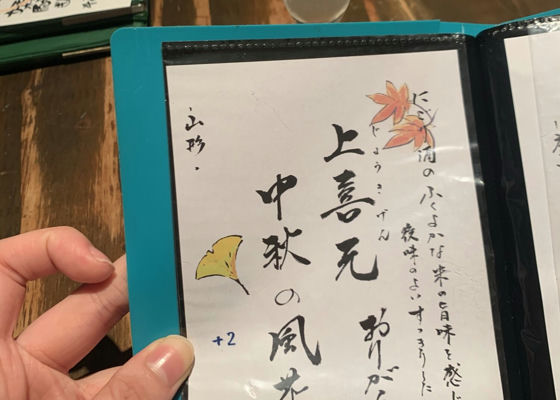 にごり酒のふくよかな米の旨味を感じ
後味のよいすっきりした
じょうきげん
上喜元 おりが
中秋の風
山形.
+2